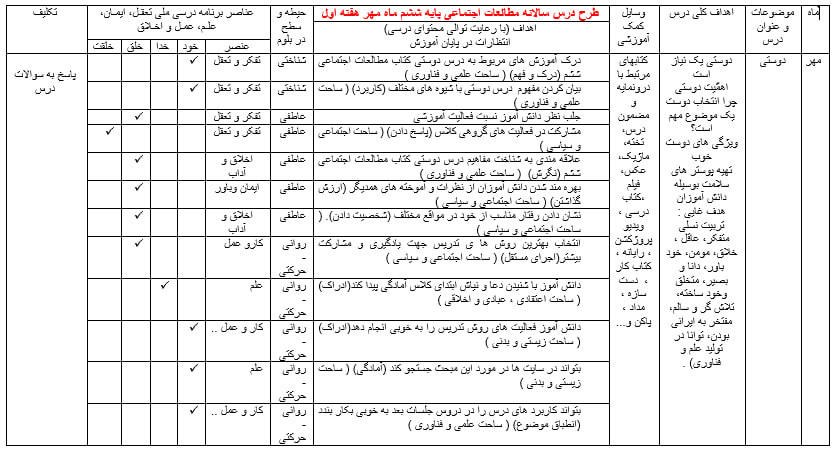 ماه
موضوعات و عنوان درس
اهداف کلی درس
وسایل کمک آموزشی
طرح درس سالانه مطالعات اجتماعی پایه ششم ماه مهر هفته اول
اهداف (با رعایت توالی محتوای درسی)
انتظارات در پایان آموزش
حیطه و سطح در بلوم
عناصر برنامه درسی ملی تعقل، ایمان، علم، عمل و اخلاق
عنصر
خود
خدا
خلق
خلقت
تکلیف
مهر
دوستی
دوستی یک نیاز
است
اهمّیت دوستی
چرا انتخاب دوست
یک موضوع مهم
است؟
ویژگی های دوست
خوب
تهیه پوستر های
سلامت بوسیله
دانش آموزان
هدف غایی :
تربیت نسلی
متفکر، عاقل ،
خلاق، مومن، خود
باور، دانا و
بصیر، متخلق
وخود ساخته،
تلاش گر و سالم،
مفتخر به ایرانی
بودن، توانا در
تولید علم و
فناوری) .
کتابهای
مرتبط با
درونمایه
و
مضمون
درس،
تخته،
ماژیک،
عکس،
فیلم
،کتاب
درسی ،
ویدیو
پروژکشن
، رایانه ،
کتاب کار
، دست
سازه ،
مداد ،
پاکن و...
درک آموزش های مربوط به درس دوستی کتاب مطالعات اجتماعی
ششم (درک و فهم) ( ساحت علمی و فناوری )
شناختی
تفکر و تعقل
✓
بیان کردن مفهوم درس دوستی با شیوه های مختلف (کاربرد) ( ساحت
علمی و فناوری )
شناختی
تفکر و تعقل
✓
جلب نظر دانش آموز نسبت فعالیت آموزشی
عاطفی
تفکر و تعقل
✓
مشارکت در فعالیت های گروهی کلاس (پاسخ دادن) ( ساحت اجتماعی
و سیاسی )
عاطفی
تفکر و تعقل
✓
علاقه مندی به شناخت مفاهیم درس دوستی کتاب مطالعات اجتماعی
ششم (نگرش) ( ساحت علمی و فناوری )
عاطفی
اخلاق و
آداب
✓
بهره مند شدن دانش آموزان از نظرات و آموخته های همدیگر (ارزش
گذاشتن) ( ساحت اجتماعی و سیاسی )
عاطفی
ایمان وباور
✓
نشان دادن رفتار مناسب از خود در مواقع مختلف (شخصیت دادن). (
ساحت اجتماعی و سیاسی )
عاطفی
اخلاق و
آداب
✓
انتخاب بهترین روش ها ی تدریس جهت یادگیری و مشارکت
بیشتر(اجرای مستقل) ( ساحت اجتماعی و سیاسی )
روانی
-
حرکتی
کارو عمل
✓
دانش آموز با شنیدن دعا و نیاش ابتدای کلاس آمادگی پیدا کند(ادراک)
( ساحت اعتقادی ، عبادی و اخلاقی )
روانی
-
حرکتی
علم
✓
دانش آموز فعالیت های روش تدریس را به خوبی انجام دهد(ادراک)
( ساحت زیستی و بدنی )
روانی
-
حرکتی
کار و عمل ..
✓
بتواند در سایت ها در مورد این مبحث جستجو کند (آمادگی) ( ساحت
زیستی و بدنی )
روانی
-
حرکتی
علم
✓
بتواند کاربرد های درس را در دروس جلسات بعد به خوبی بکار بندد
(انطباق موضوع) ( ساحت علمی و فناوری )
روانی
-
حرکتی
کار و عمل ..
✓
پاسخ به سوالات
درس